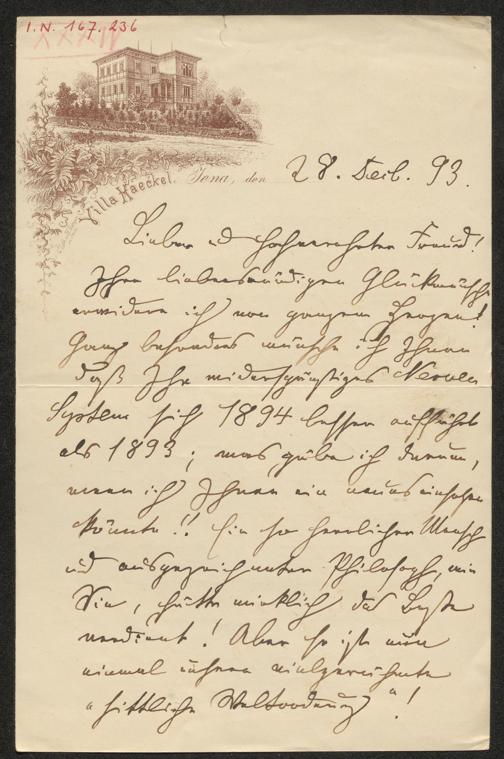 I.N. 167.236
XXXIV
Villa Haeckel. Jena, den 28. Decb. 93.
Lieber u hochverehrter Freund!
Ihre liebenswürdigen Glückwünsche
erwidere ich von ganzem Herzen!
Ganz besonders wünsche ich Ihnen
daß Ihr widerspänstiges Nerven
System sich 1894 besser aufführt
als 1893; was gäbe ich darum,
wenn ich Ihnen ein neues einsetzen
könnte!! Ein so herrlicher Mensch
und ausgezeichneter Philosoph, wie
Sie, hätte wirklich das Beste
verdient! Aber so ist nun
einmal unsere vielgerühmte
"sittliche Weltordnung"!